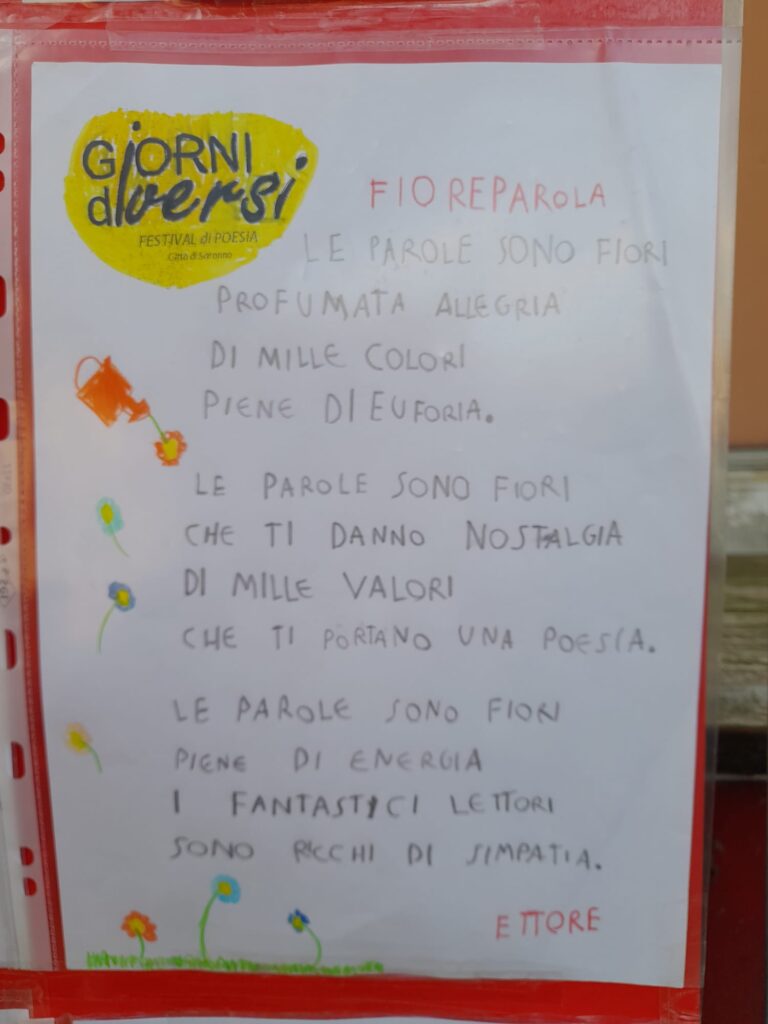 GiORNI
diversi
FESTIVAL di POESIA
Città di Saronno
FIOREPAROLA
LE PAROLE SONO FIORI
PROFUMATA ALLEGRIA
DI MILLE COLORI
PIENE DI EUFORIA.
LE PAROLE SONO FIORI
CHE TI DANNO NOSTALGIA
DI MILLE VALORI
CHE TI PORTANO UNA POESIA.
LE PAROLE SONO FIORI
PIENE DI ENERGIA
I FANTASTICI LETTORI
SONO RICCHI DI SIMPATIA.
ETTORE